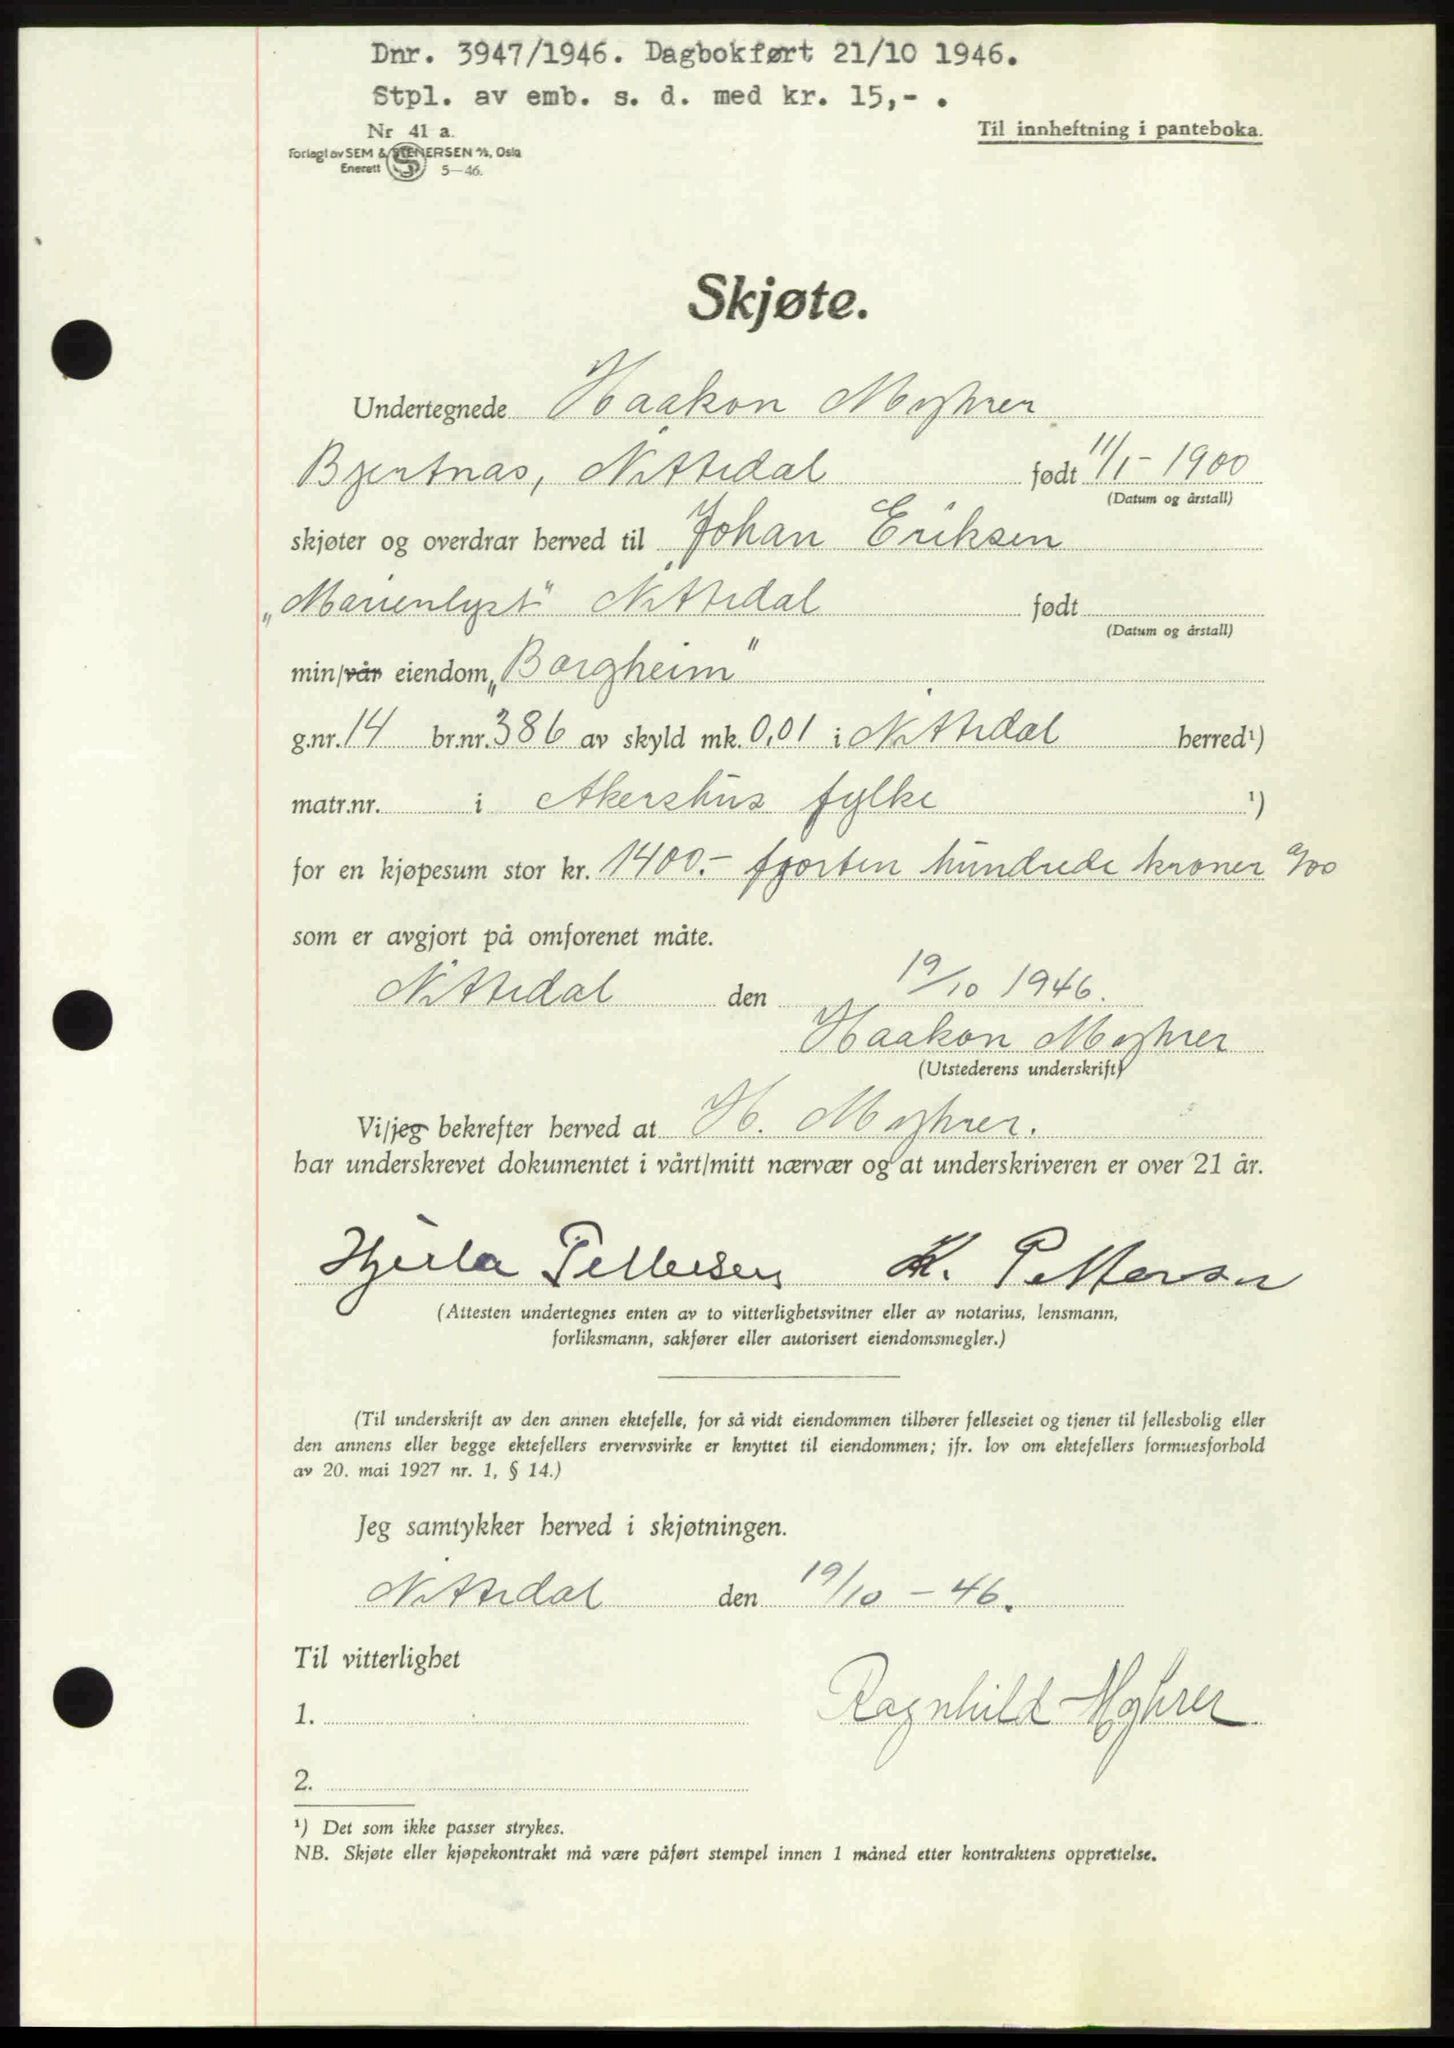 Dnr. 3947/1946. Dagbokført 21/10 1946.
Stpl. av emb. s. d. med kr. 15,- .
Nr 41 a.
Til innheftning i panteboka.
Forlagt av SEM & STENERSEN A/S, Oslo
Enerett 5—46.
Skjøte.
Undertegnede Haakon Myhrer
Bjertnæs, Nittedal født 11/1- 1900
(Datum og årstall)
skjøter og overdrar herved til Johan Eriksen
„Marienlyst" Nittedal født
(Datum og årstall)
min/vår eiendom „Borgheim"
g.nr. 14 br.nr. 386 av skyld mk. 0,01 i Nittedal herred¹)
matr.nr. i Akershus fylke ¹)
for en kjøpesum stor kr. 1400.- fjorten hundrede kroner 0/00
som er avgjort på omforenet måte.
Nittedal den 19/10 1946.
Haakon Myhrer
(Utstederens underskrift)
Vi/jeg bekrefter herved at H. Myhrer.
har underskrevet dokumentet i vårt/mitt nærvær og at underskriveren er over 21 år.
Pettersen K. Pettersen
(Attesten undertegnes enten av to vitterlighetsvitner eller av notarius, lensmann,
forliksmann, sakfører eller autorisert eiendomsmegler.)
(Til underskrift av den annen ektefelle, for så vidt eiendommen tilhører felleseiet og tjener til fellesbolig eller
den annens eller begge ektefellers ervervsvirke er knyttet til eiendommen; jfr. lov om ektefellers formuesforhold
av 20. mai 1927 nr. 1, § 14.)
Jeg samtykker herved i skjøtningen.
Nittedal den 19/10 - 46.
Til vitterlighet
Ragnhild Myhrer
1.
2.
¹) Det som ikke passer strykes.
NB. Skjøte eller kjøpekontrakt må være påført stempel innen 1 måned etter kontraktens opprettelse.